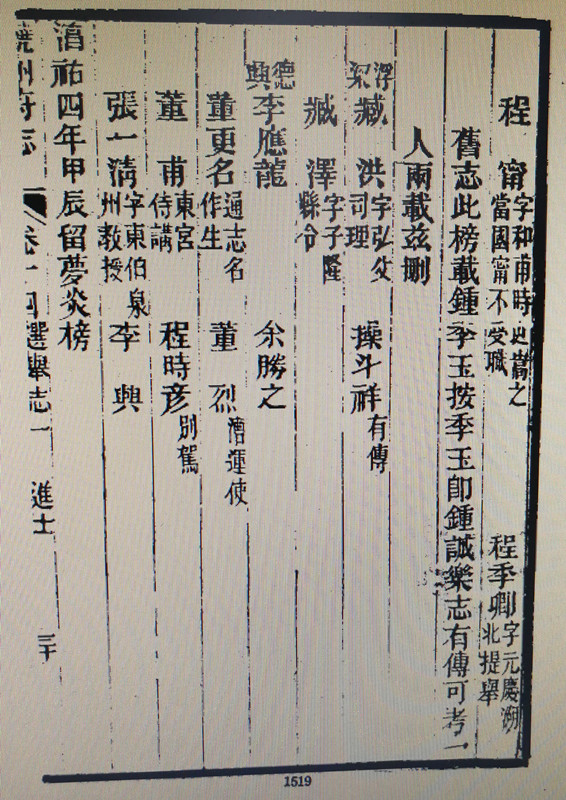 程甯字和甫時史嵩之當國甯不受職 程季卿字元慶湖北提舉
舊志此榜載鍾季玉按季玉卽鍾誠樂志有傳可考一
人兩載茲刪
浮梁臧洪字弘父司理 操斗祥有傳
臧澤字子隆縣令
德興李應龍 余勝之
董更名通志名作生 董烈漕運使
董甫東宮侍講 程時彥別駕
張一清字東伯泉州教授 李興
淳祐四年甲辰留夢炎榜
饒州府志 卷十四選舉志一 進士 三十
1519